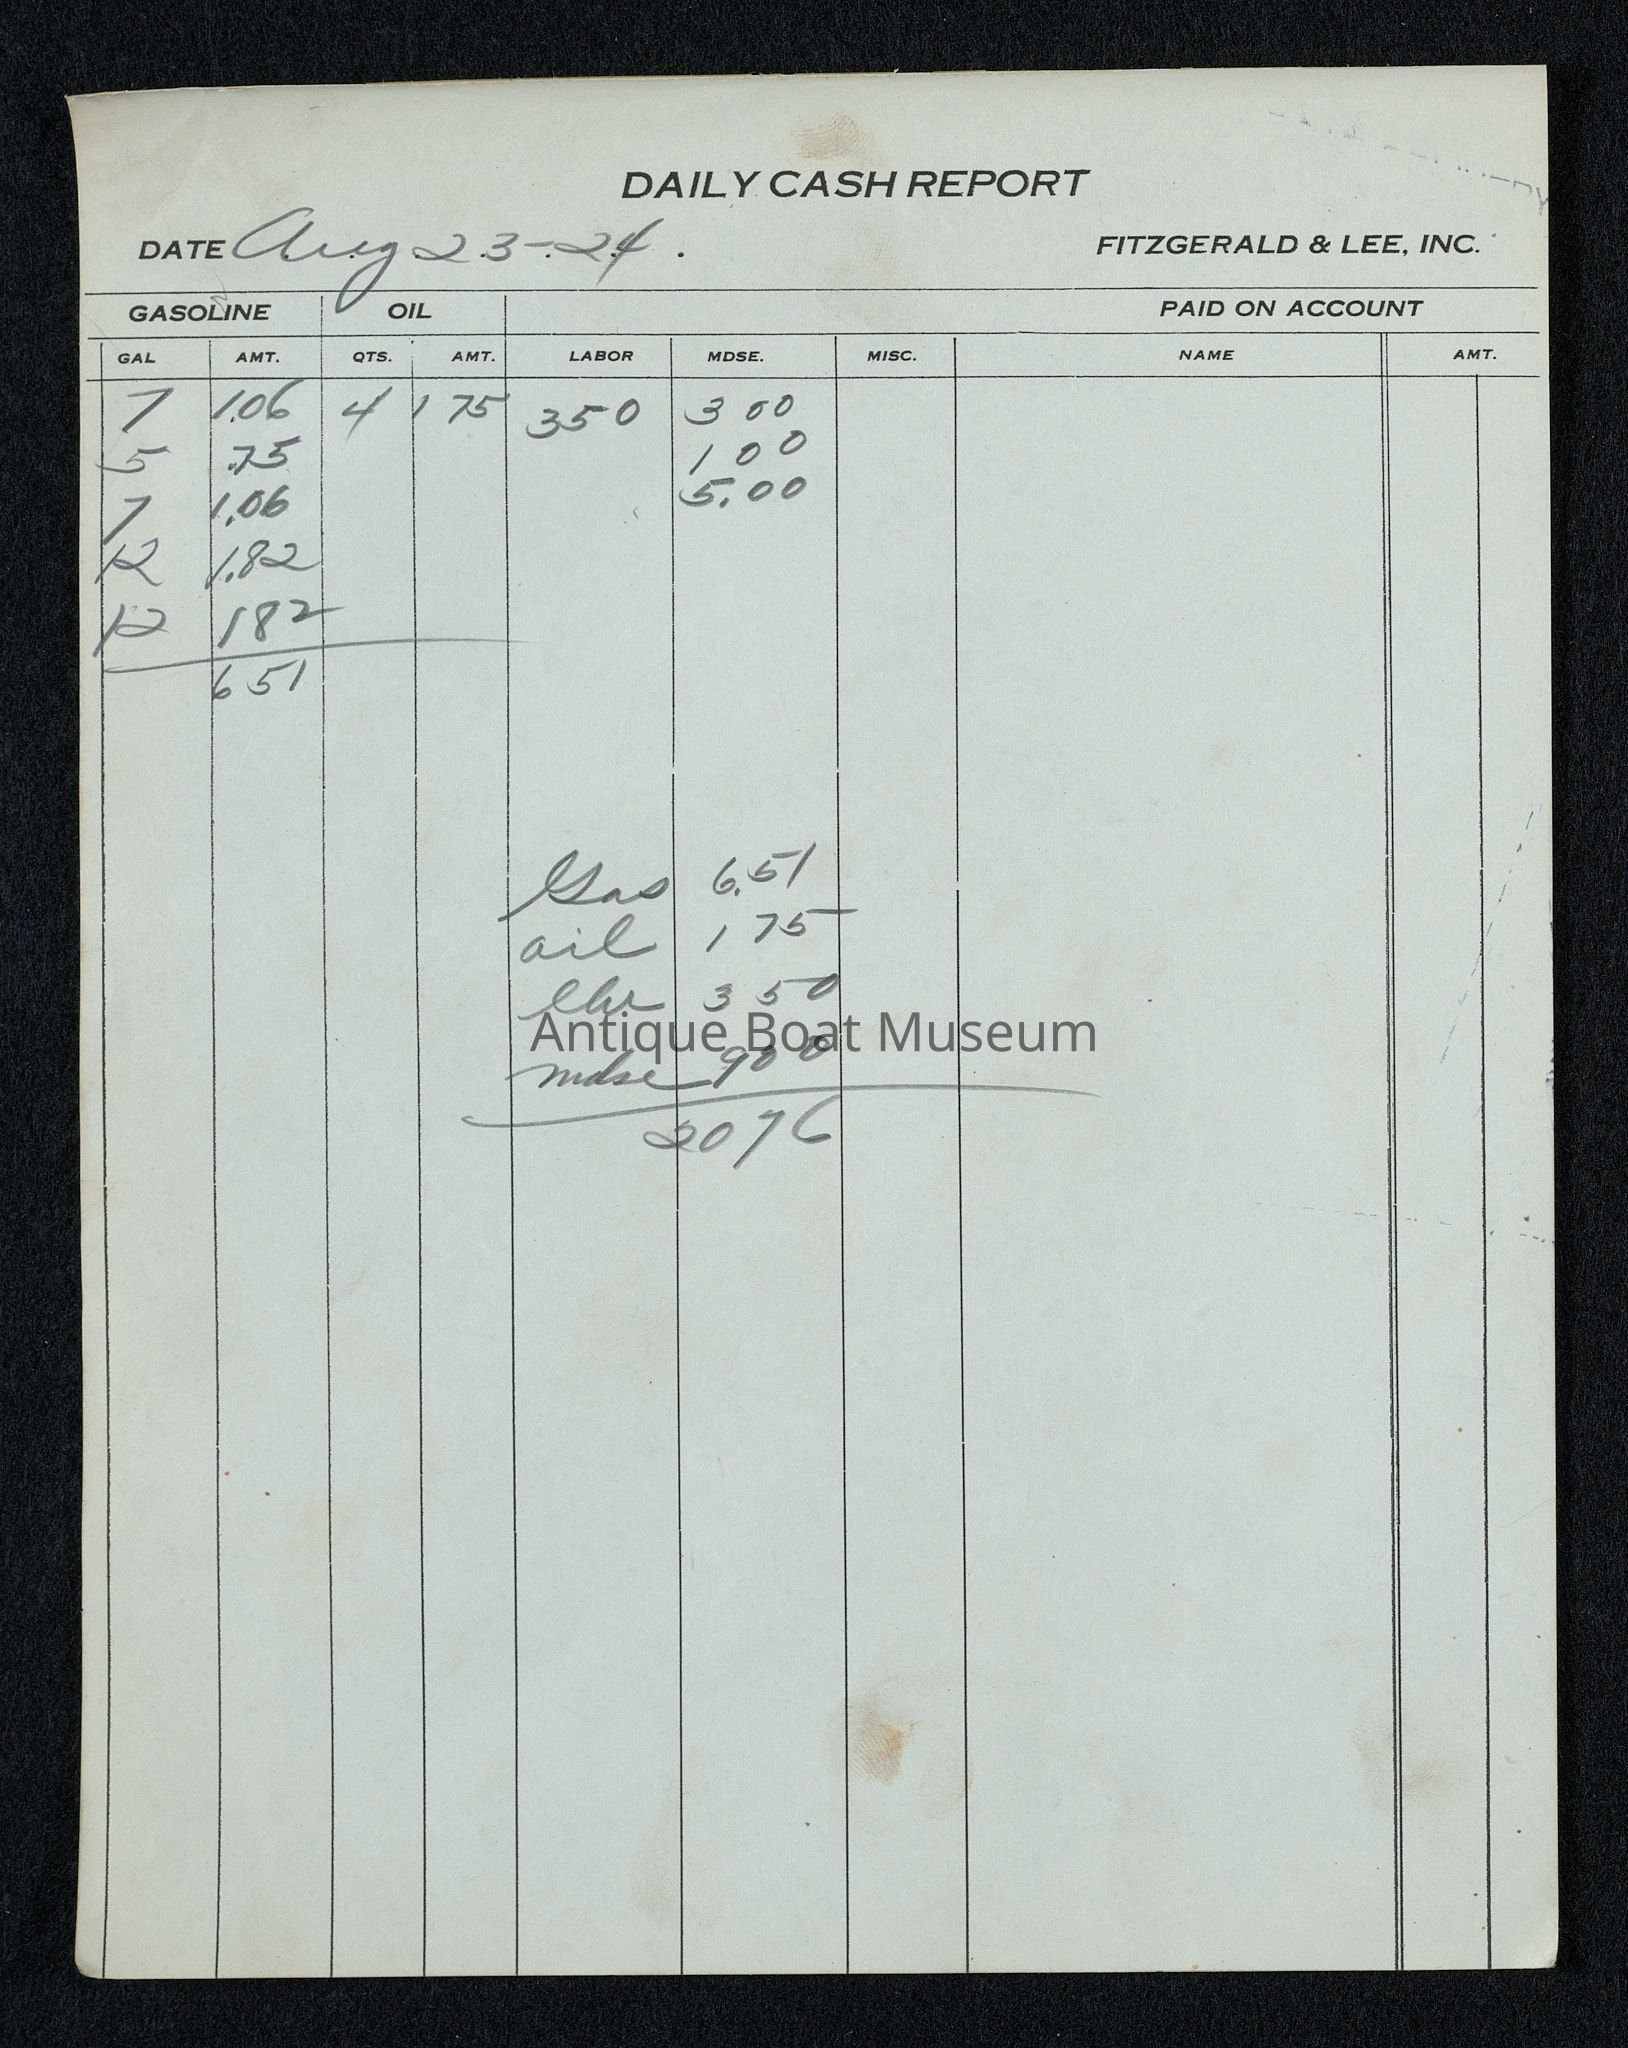 DAILY CASH REPORT
DATE Aug 23-24.
FITZGERALD & LEE, INC.
GASOLINE OIL PAID ON ACCOUNT
GAL AMT. QTS. AMT. LABOR MDSE. MISC. NAME AMT.
7 1.06 4 1 75 350 3 00
5 .75 1 00
7 1.06 5.00
12 1.82
12 182
651
Gas 6.51
oil 1 75
lbr 3 50
Antique Boat Museum
mdse 900
2076